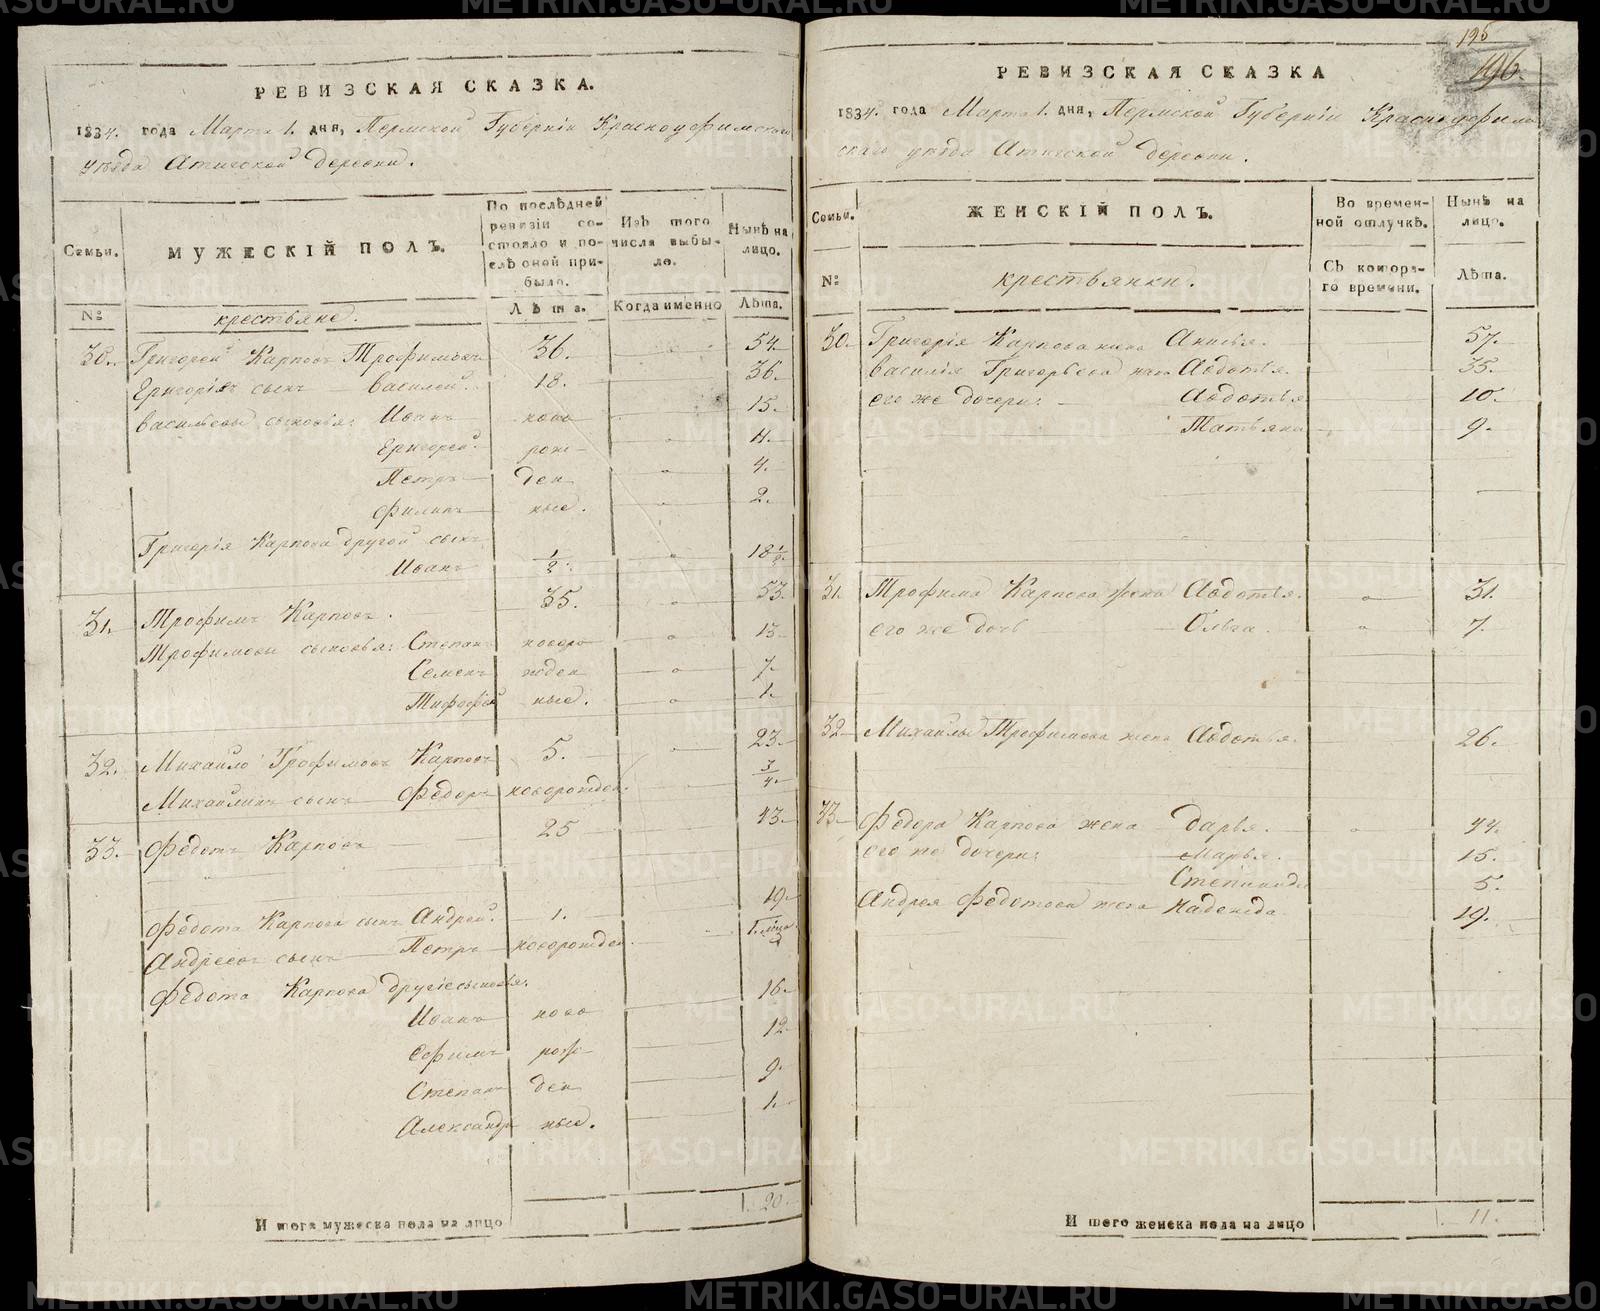 РЕВИЗСКАЯ СКАЗКА.
1834. года Марта 1. дня, Пермской Губерніи Красноуфимскаго
уѣзда Атигской деревни.
Семьи.
МУЖЕСКІЙ ПОЛЪ.
По послѣдней ревизіи состояло и послѣ оной прибыло.
Изъ того числа выбыло.
Нынѣ на лицо.
№
крестьяне.
Лѣта.
Когда именно
Лѣта.
30. Григорей Карповъ Трофимовъ 36. 54.
Григорія сынъ Василей. 18. 36.
Васильевы сыновья: Иванъ ново 15.
Григорей рож 11.
Петръ ден 4.
Филипъ ные. 2.
Григорія Карпова другой сынъ
Иванъ 1/2. 18 1/2.
31. Трофимъ Карповъ. 35. 53.
Трофимовы сыновья: Степанъ новоро 13.
Семенъ жден 7.
Тимофей ные. 1.
32. Михайло Трофимовъ Карповъ 5. 23.
Михайлинъ сынъ Федоръ новорожден. 3/4.
33. Федотъ Карповъ 25 43.
Федота Карпова сынъ Андрей. 1. 19.
Андреевъ сынъ Петръ новорожден.
Федота Карпова другіе сыновья:
Иванъ ново 16.
Ефимъ рож 12.
Степанъ ден 9.
Александръ ные. 1.
Итого мужеска пола на лицо 20.
195
196.
РЕВИЗСКАЯ СКАЗКА
1834. года Марта 1. дня, Пермской Губерніи Красноуфим
скаго уѣзда Атигской деревни.
Семьи.
ЖЕНСКІЙ ПОЛЪ.
Во временной отлучкѣ.
Нынѣ на лицо.
№
крестьянки.
Съ котораго времени.
Лѣта.
30. Григорія Карпова жена Анисья. 57.
Василія Григорьева жена Авдотья. 35.
его же дочери: Авдотья 10.
Татьяна 9.
31. Трофима Карпова жена Авдотья. 31.
его же дочь Ольга. 7.
32 Михайлы Трофимова жена Авдотья. 26.
33. Федора Карпова жена Дарья. 44.
его же дочери: Марья. 15.
Степанида 5.
Андрея Федотова жена Надежда 19.
Итого женска пола на лицо 11.
METRIKI.GASO-URAL.RU